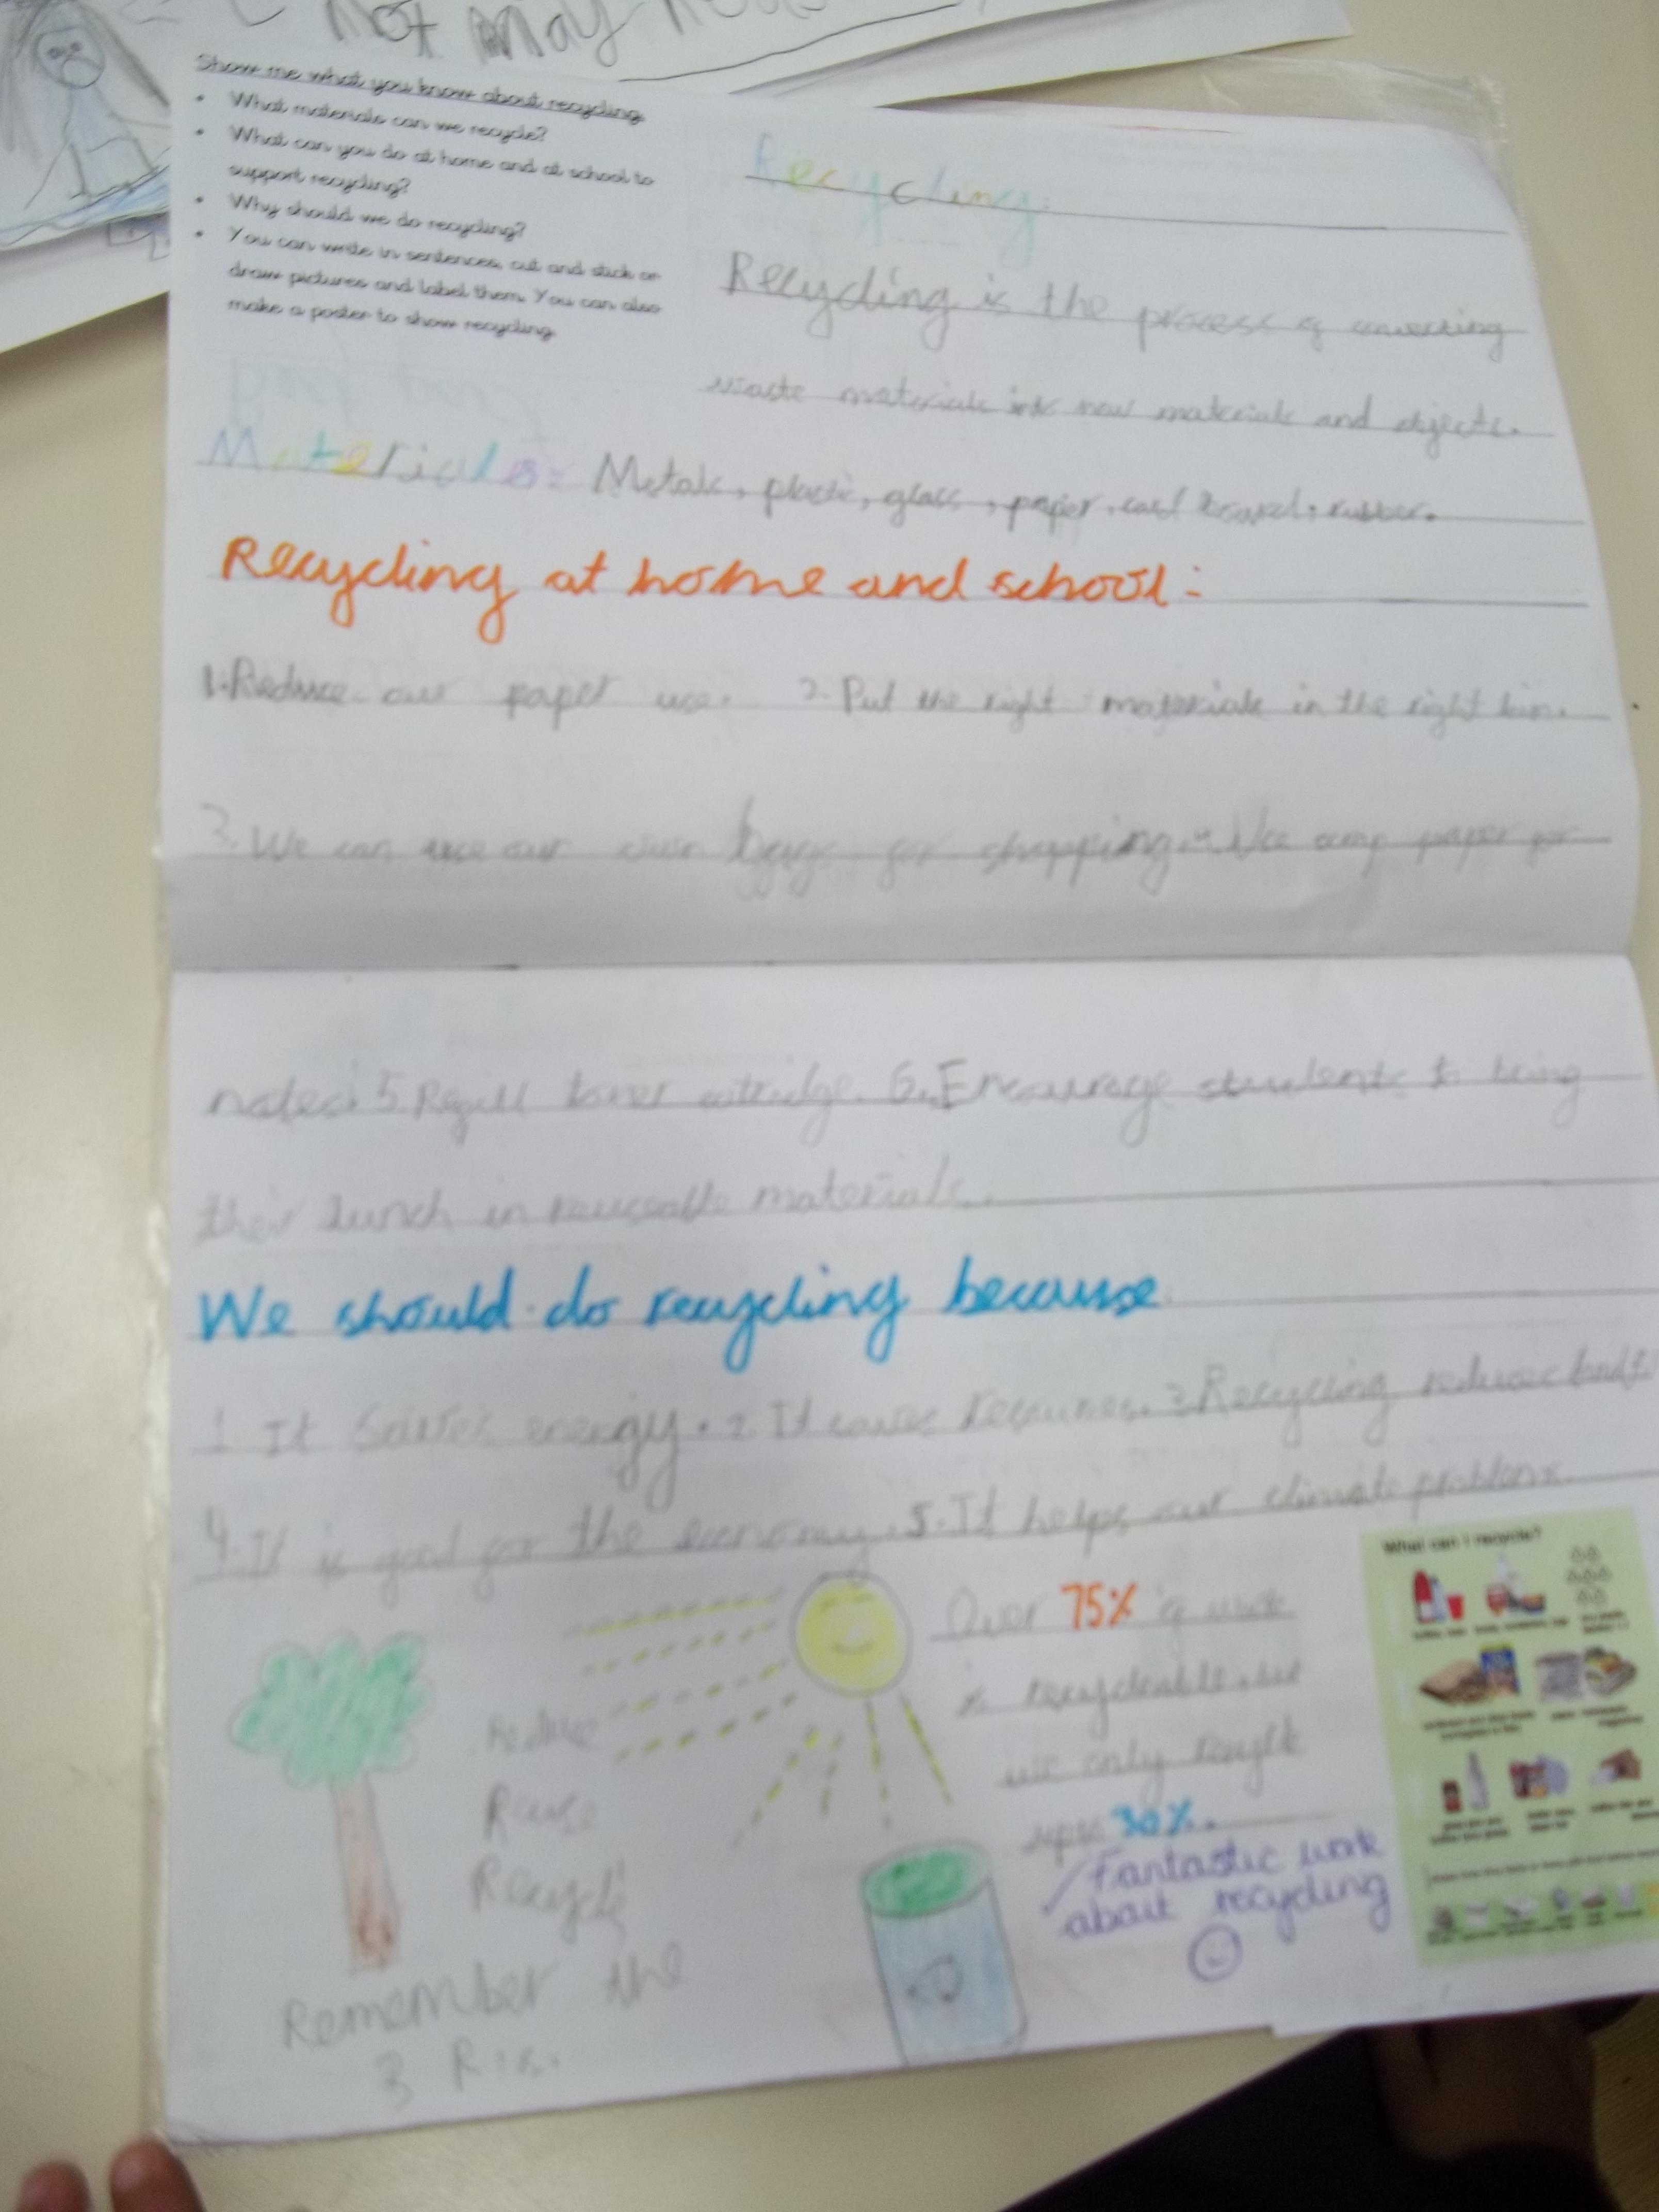 Not May
Show me what you know about recycling.
• What materials can we recycle?
• What can you do at home and at school to
support recycling?
• Why should we do recycling?
• You can write in sentences, cut and stick or
draw pictures and label them. You can also
make a poster to show recycling.
Recycling:
Recycling is the process of converting
waste materials into new materials and objects.
Materials: Metals, plastic, glass, paper, card board, rubber.
Recycling at home and school:
1. Reduce our paper use. 2. Put the right materials in the right bin.
3. We can use our own bags for shopping. Use paper for
notes. 5. Refill toner 6. Encourage students to bring
their lunch in reuseable materials.
We should do recycling because
1. It saves energy. 2. It resources. 3 Recycling reduces
4. It is good for the economy. 5. It helps our climate problems
Over 75% of waste
is recycleable, but
we only recycle
30%.
Reduce
Reuse
Recycle
Remember the
3 R's.
Fantastic work
about recycling
What can I recycle?